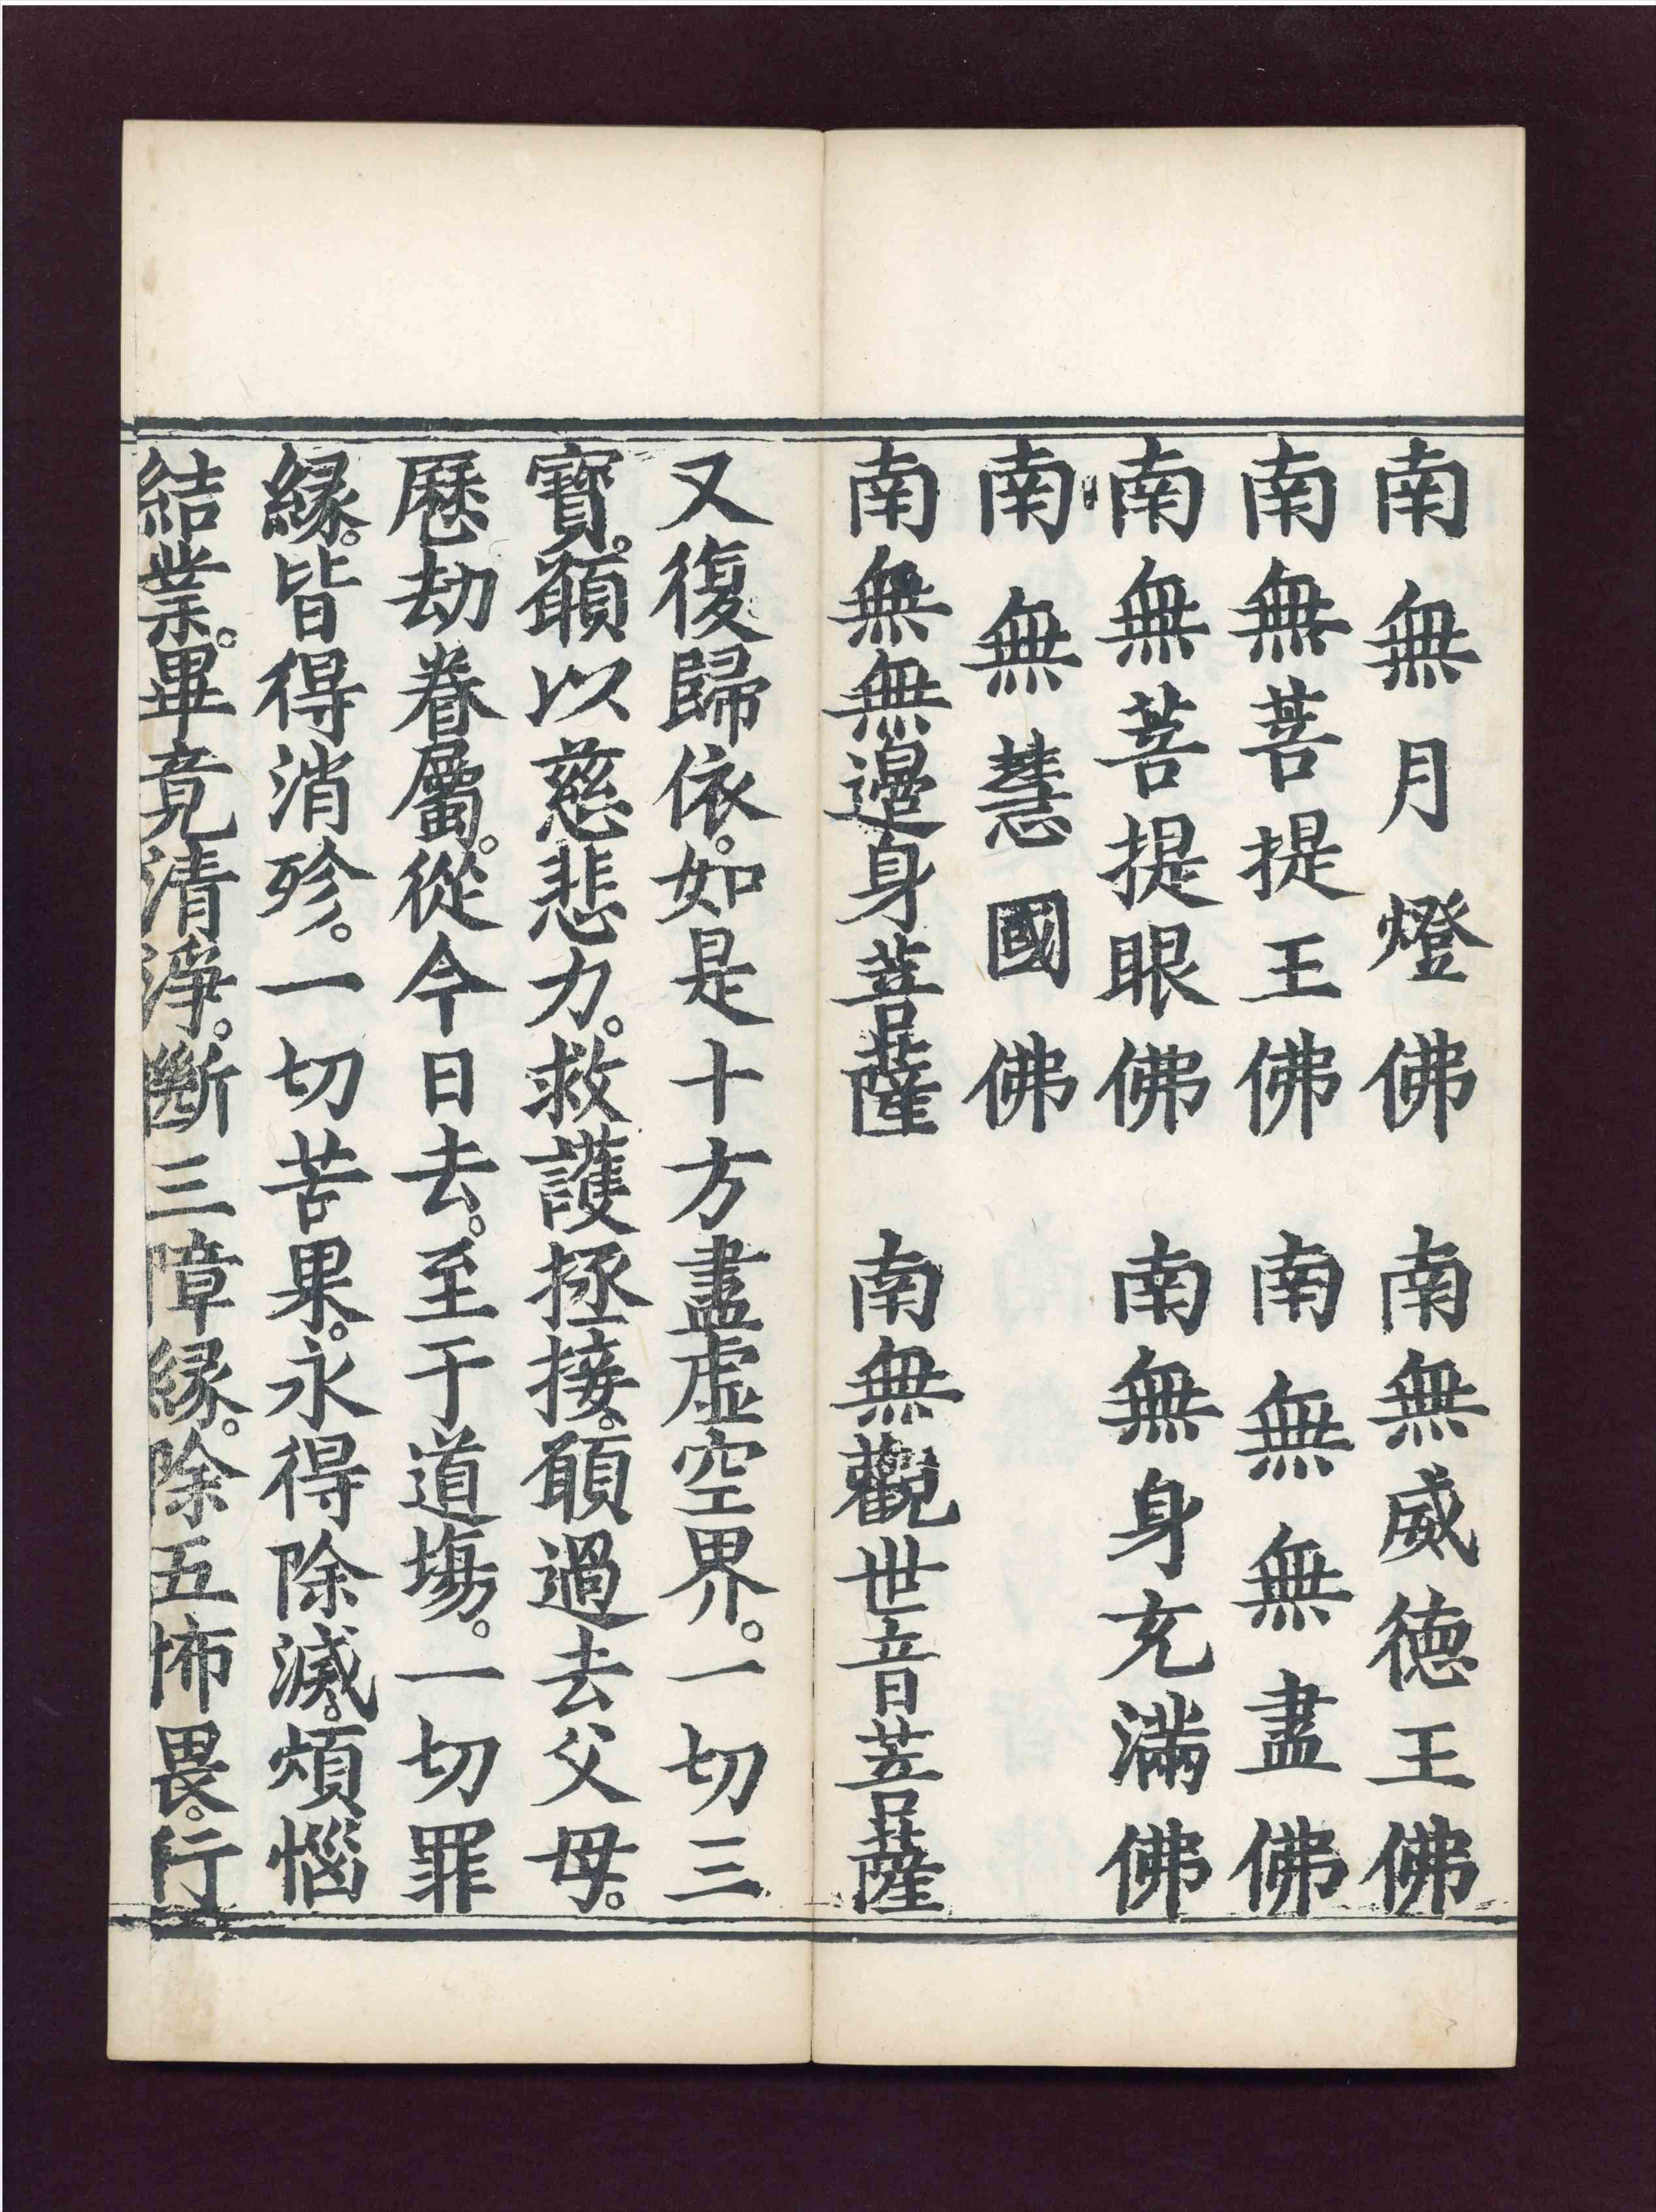 南無月燈佛　南無威德王佛
南無菩提王佛　南無無盡佛
南無菩提眼佛　南無身充滿佛
南無慧國佛
南無無邊身菩薩　南無觀世音菩薩
又復歸依。如是十方盡虛空界。一切三
寶。願以慈悲力。救護拯接。願過去父母。
歷劫眷屬。從今日去。至于道場。一切罪
緣。皆得消殄。一切苦果。永得除滅。煩惱
結業。畢竟清淨。斷三障緣。除五怖畏。行